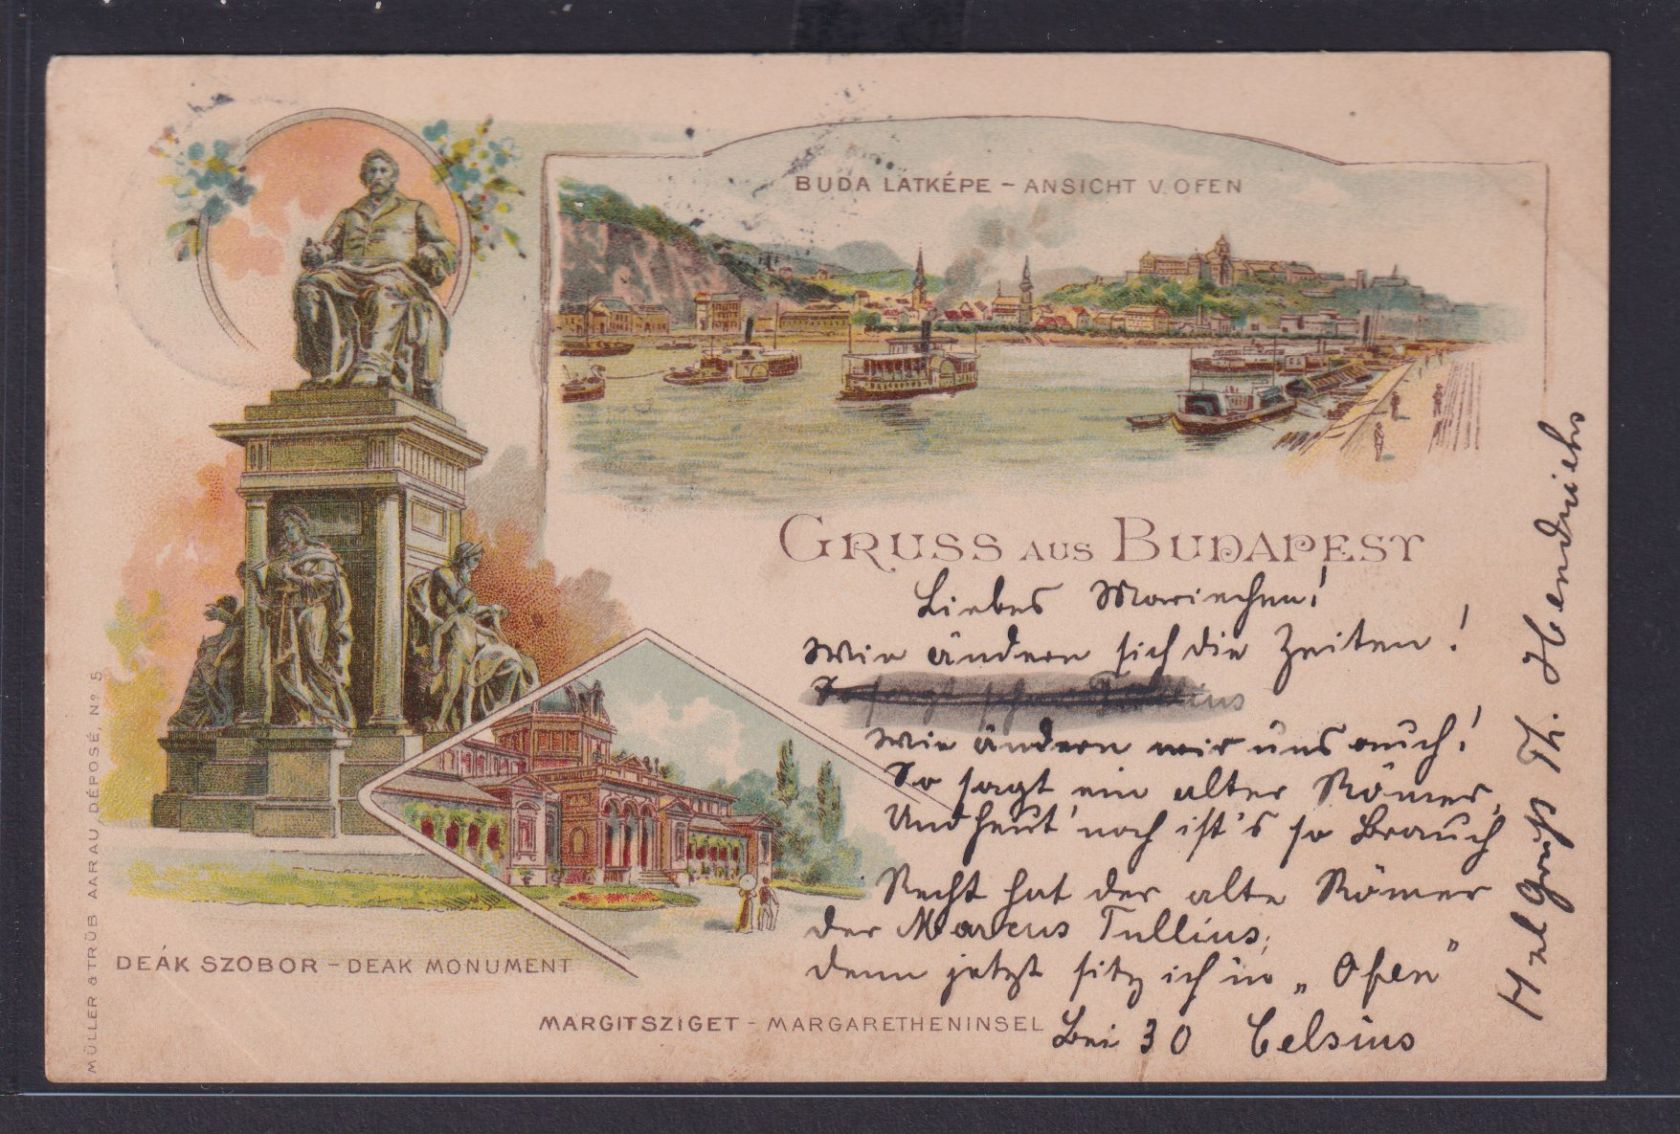 BUDA LÁTKÉPE – ANSICHT V. OFEN
GRUSS AUS BUDAPEST
Liebes Mariechen!
Wie ändern sich die Zeiten!
So sagt schon Tullius
Wie ändern wir uns auch!
So sagt ein alter Römer,
Und heut' noch ist's so Brauch
Recht hat der alte Römer
der Marcus Tullius,
denn jetzt sitz ich in „Ofen"
Bei 30 Celsius
Gruß Th. Hendrichs
DEÁK SZOBOR – DEAK MONUMENT
MARGITSZIGET – MARGARETHENINSEL
MÜLLER & TRÜB AARAU DÉPOSÉ, No. 5